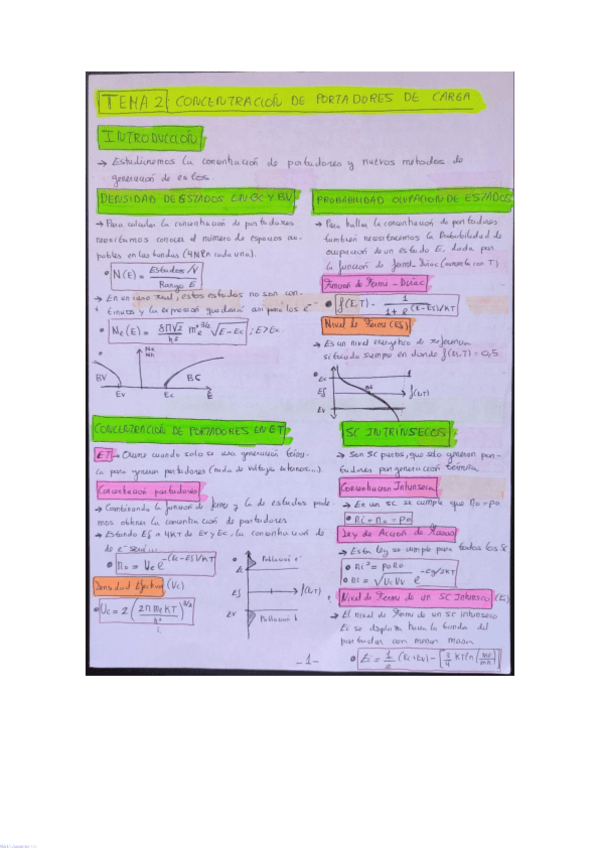 TEMA 2: CONCENTRACIÓN DE PORTADORES DE CARGA
INTRODUCCIÓN
→ Estudiaremos la concentración de portadores y nuevos metodos de
generación de estos.
DENSIDAD DE ESTADOS EN BC Y BV
→ Para calcular la concentración de portadores
necesitamos conocer el número de espacios
en las bandas (4N en cada una).
• N(E) = Estados/V / Rango E
→ En un caso real, estos estados no son con-
tinuos y la expresión quedará así para los e⁻
• Nc(E) = 8π√2 / h³ me*^3/2 √E-Ec ; E>Ec
Nc
Nh
BV
BC
Ev
Ec
E
PROBABILIDAD OCUPACION DE ESTADOS
→ Para hallar la concentración de portadores
también necesitaremos la Probabilidad de
ocupación de un estado E, dada por
la función de Fermi-Dirac (aumenta con T)
Función de Fermi-Dirac
• f(E,T) = 1 / 1 + e^(E-Ef)/KT
Nivel de Fermi (Ef)
→ Es un nivel energético de referencia
situado siempre en donde f(E,T) = 0,5.
E
Ec
Ef
Ev
f(E,T)
CONCENTRACIÓN DE PORTADORES EN ET
ET → Ocurre cuando solo se usa generación térmi-
ca para generar portadores (nada de voltajes externos...)
Concentración portadores
→ Combinando la función de Fermi y la de estados pode-
mos obtener la concentración de portadores
→ Estando Ef a 4KT de Ev y Ec, la concentración de
de e⁻ será...
• n₀ = Uc e^-(Ec-Ef)/KT
Densidad Efectiva (Uc)
• Uc = 2 (2π me KT / h²)^3/2
E
Ec
Población e⁻
Ef
f(E,T)
Ev
Población h
SC INTRINSECOS
→ Son SC puros, que solo generan por-
tadores por generación térmica
Concentracion Intrinseca
→ En un SC se cumple que n₀ = p₀
• ni = n₀ = p₀
Ley de Acción de Masas
→ Esta ley se cumple para todos los SC
• ni² = p₀ n₀
• ni = √Uc Uv e^-Eg/2KT
Nivel de Fermi de un SC Intrinseco (Ei)
→ El nivel de Fermi de un SC intrinseco
Ei se desplaza hacia la banda del
portador con menor masa
• Ei = 1/2 (Ec+Ev) - [3/4 KT ln (me/mh)]
-1-